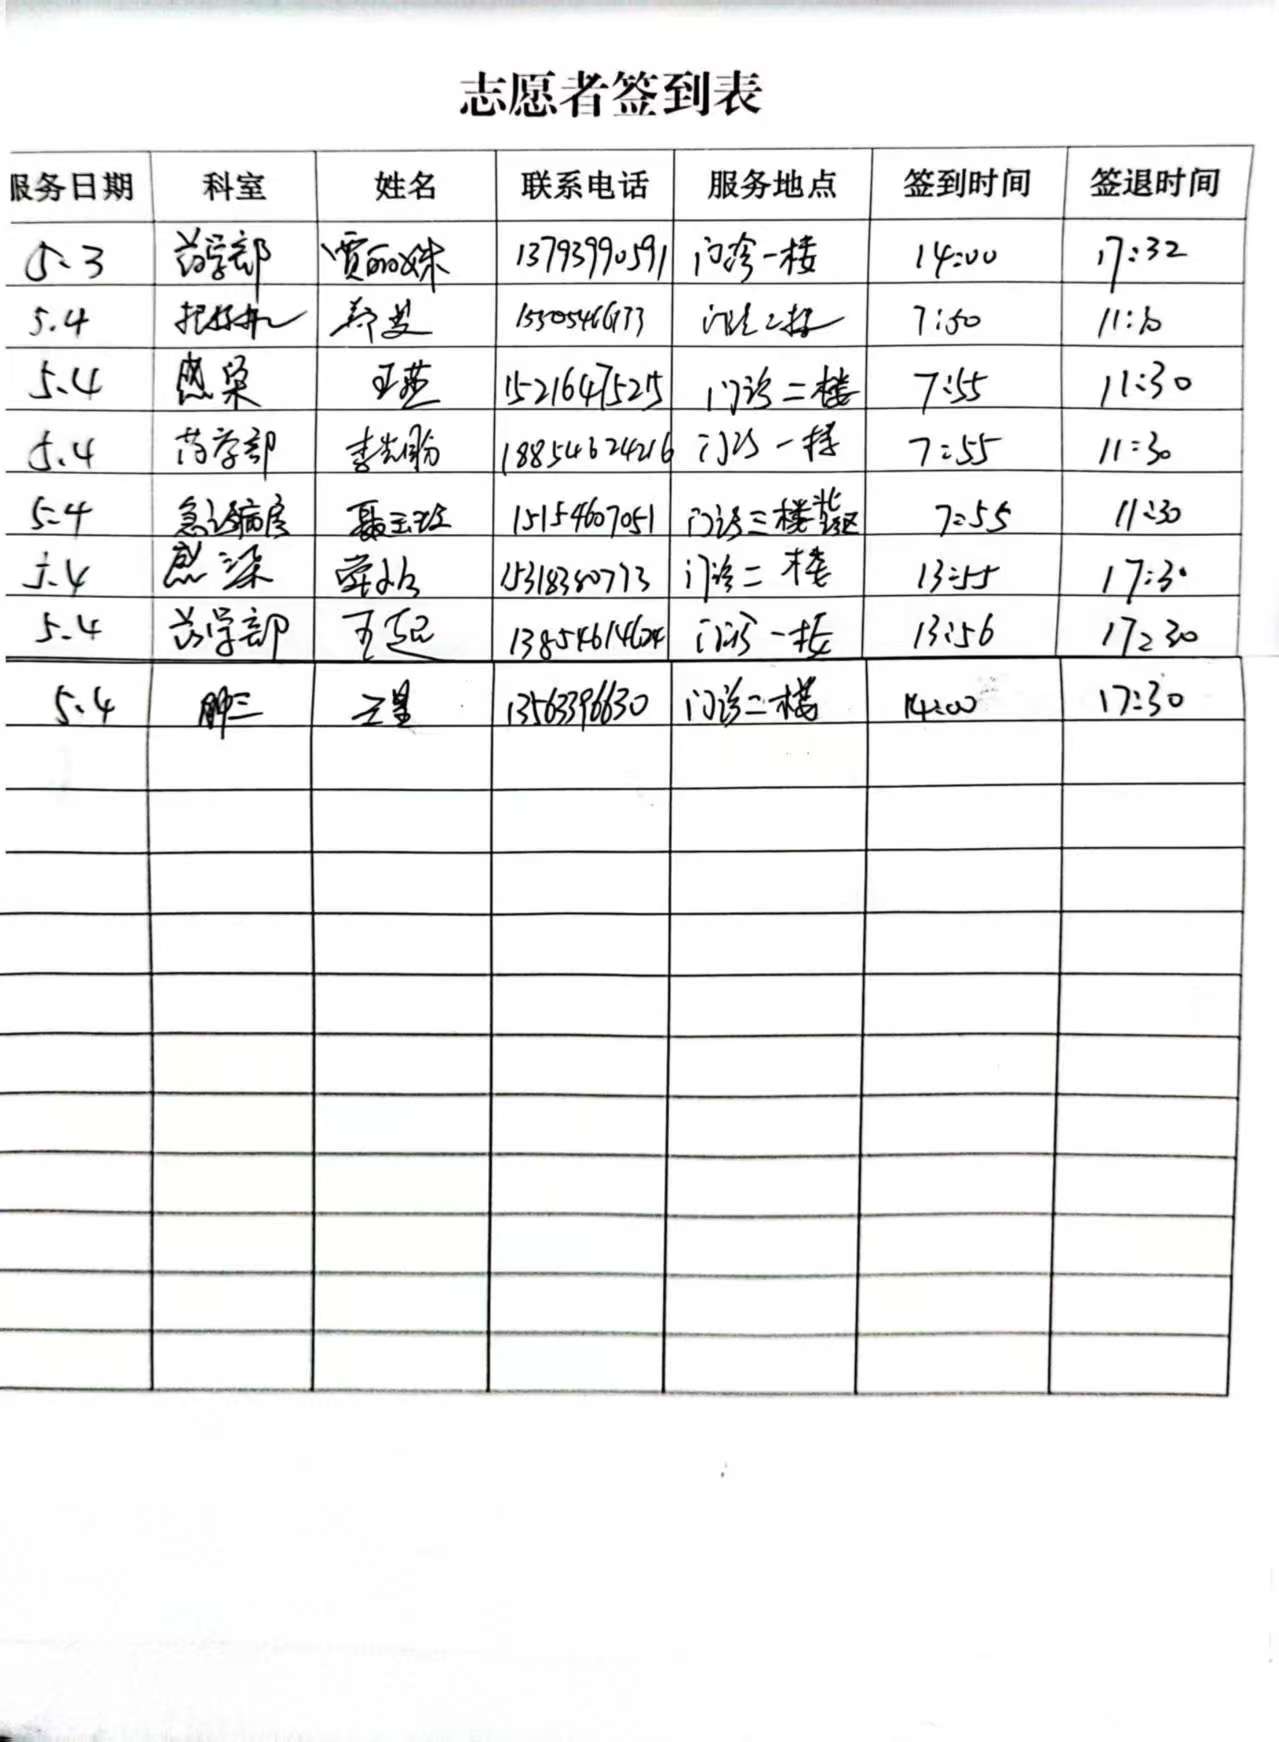 志愿者签到表
服务日期 科室 姓名 联系电话 服务地点 签到时间 签退时间
5.3 药学部 贾丽姝 13793990591 门诊一楼 14:00 17:32
5.4 7:50 11:30
5.4 感染 王燕 15216475215 门诊二楼 7:55 11:30
5.4 药学部 李先盼 18854624216 门诊一楼 7:55 11:30
5.4 急诊病房 15154607051 门诊三楼 7:55 11:30
5.4 感染 15318380773 门诊二楼 13:55 17:30
5.4 药学部 王超 13854614624 门诊一楼 13:56 17:30
5.4 肿三 王星 13563396630 门诊二楼 14:00 17:30